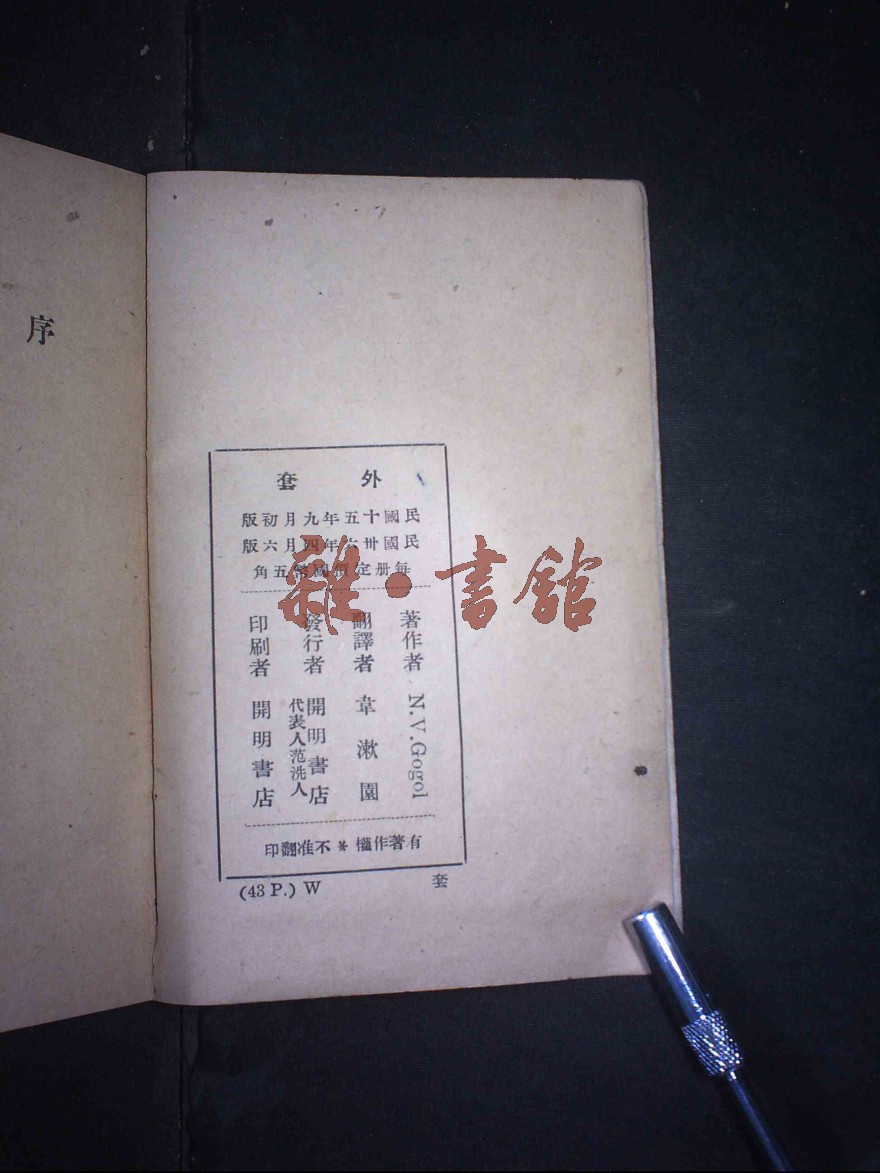 序
外套
民國十五年九月初版
民國卅六年四月六版
每册定價國幣五角
著作者 N.V.Gogol
翻譯者 韋漱園
發行者 開明書店
代表人范洗人
印刷者 開明書店
有著作權*不准翻印
(43 P.) W
套
雜·書館